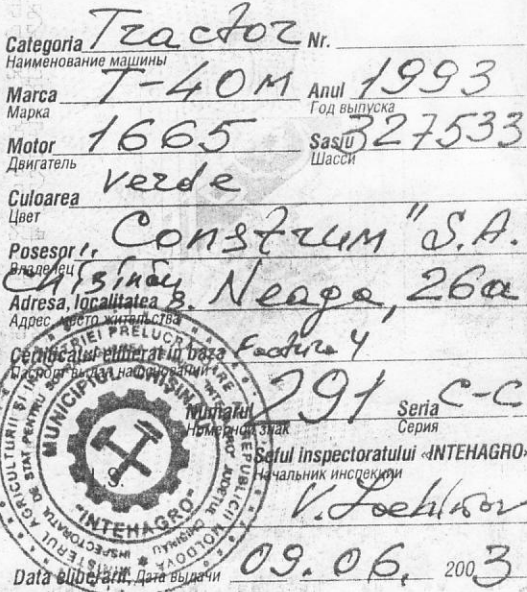 Categoria Tractor Nr.
Наименование машины
Marca T-40M Anul 1993
Марка Год выпуска
Motor 1665 Sasiu 327533
Двигатель Шасси
Culoarea Verde
Цвет
Posesor "Construm" S.A.
Владелец
Chișinău
Adresa, localitatea s. Neaga, 26a
Адрес, место жительства
Certificatul eliberat în baza Factura 4
Паспорт выдан на основании
Numărul 291 Seria C-C
Номерной знак Серия
Șeful inspectoratului «INTEHAGRO»
Начальник инспекции
L.S.
MUNICIPIUL CHIȘINĂU
"INTEHAGRO"
MINISTERUL AGRICULTURII ȘI INDUSTRIEI PRELUCRĂTOARE
REPUBLICII MOLDOVA
INSPECTORATUL DE STAT PENTRU
Data eliberării, Дата выдачи 09.06. 2003